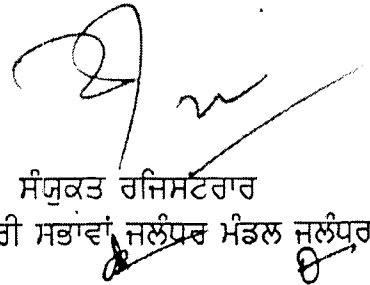 ਸੰਯੁਕਤ ਰਜਿਸਟਰਾਰ
ਰੀ ਸਭਾਵਾਂ ਜਲੰਧਰ ਮੰਡਲ ਜਲੰਧਰ